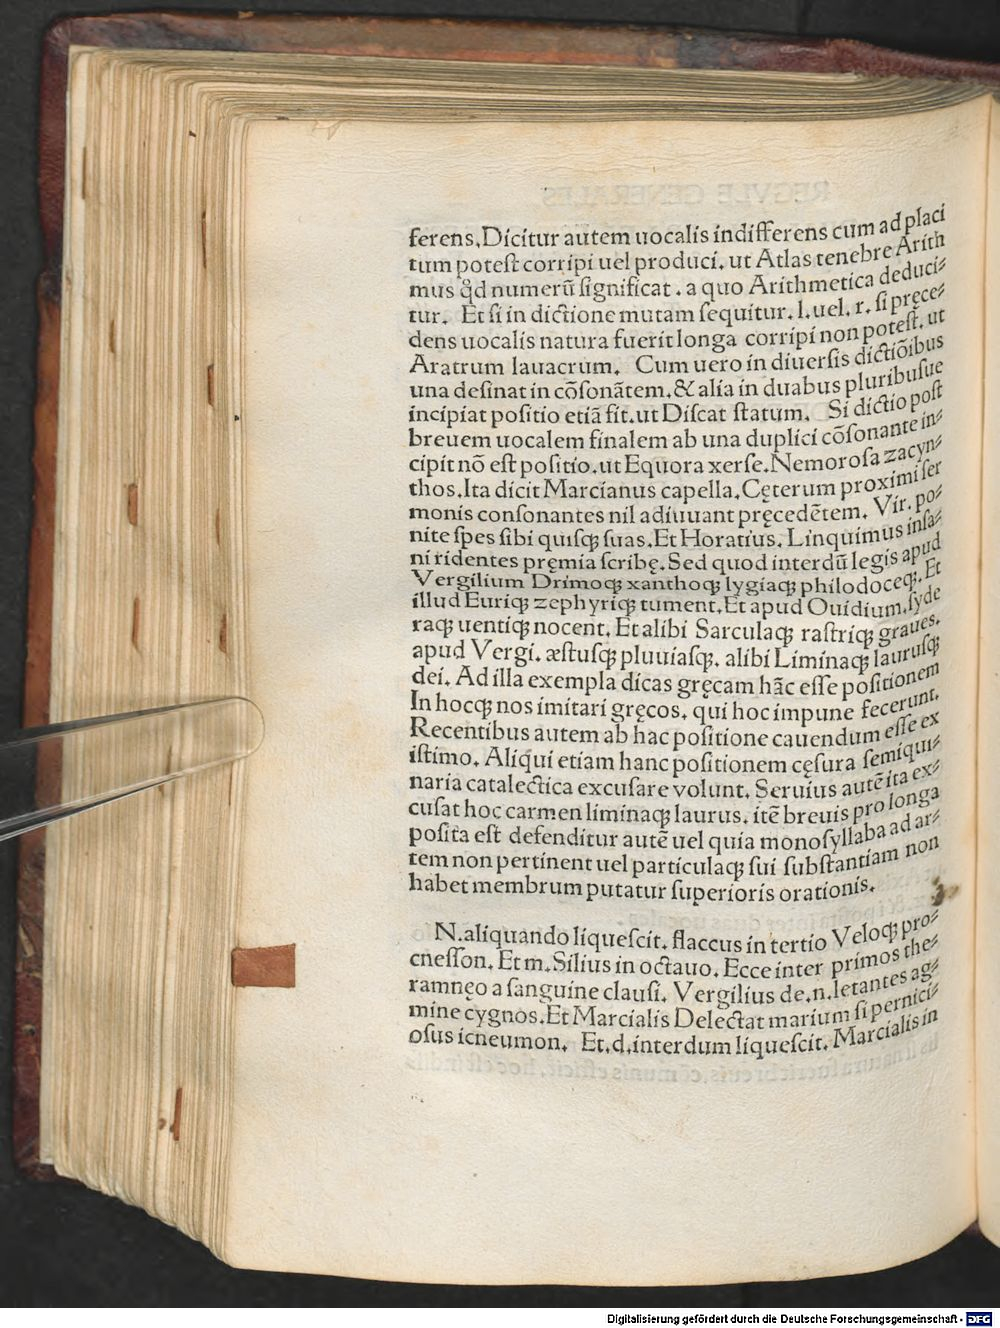 ferens.Dicitur autem uocalis indifferens cum ad placi
tum potest corripi uel produci. ut Atlas tenebre Arith
mus qđ numerū significat . a quo Arithmetica deduci-
tur. Et si in dictione mutam sequitur. l. uel. r. si pręce-
dens uocalis natura fuerit longa corripi non potest. ut
Aratrum lauacrum. Cum uero in diuersis dictiōibus
una desinat in cōsonātem.& alia in duabus pluribusue
incipiat positio etiā fit.ut Discat statum. Si dictio post
breuem uocalem finalem ab una duplici cōsonante in-
cipit nō est positio.ut Equora xerse.Nemorosa zacyn-
thos.Ita dicit Marcianus capella.Cęterum proximi ser
monis consonantes nil adiuuant pręcedētem. Vir. po-
nite spes sibi quisqȝ suas.Et Horatius. Linquimus insa-
ni ridentes pręmia scribę.Sed quod interdū legis apud
Vergilium Drimoqȝ xanthoqȝ lygiaqȝ philodoceqȝ. Et
illud Euriqȝ zephyriqȝ tument.Et apud Ouidium.syde
raqȝ uentiqȝ nocent. Et alibi Sarculaqȝ rastriqȝ graues.
apud Vergi. æstusqȝ pluuiasqȝ. alibi Liminaqȝ laurusqȝ
dei. Ad illa exempla dicas gręcam hāc esse positionem
In hocqȝ nos imitari gręcos. qui hoc impune fecerunt.
Recentibus autem ab hac positione cauendum esse ex
istimo. Aliqui etiam hanc positionem cęsura semiqui-
naria catalectica excusare volunt. Seruius autē ita ex-
cusat hoc carmen liminaqȝ laurus. itē breuis pro longa
posita est defenditur autē uel quia monosyllaba ad ar-
tem non pertinent uel particulaqȝ sui substantiam non
habet membrum putatur superioris orationis.
N.aliquando liquescit. flaccus in tertio Veloqȝ pro-
cnesson. Et m. Silius in octauo. Ecce inter primos the-
ramnęo a sanguine clausi. Vergilius de.n.letantes ag-
mine cygnos.Et Marcialis Delectat marium si pernici-
osus icneumon. Et.d.interdum liquescit. Marcialis in
Digitalisierung gefördert durch die Deutsche Forschungsgemeinschaft - DFG